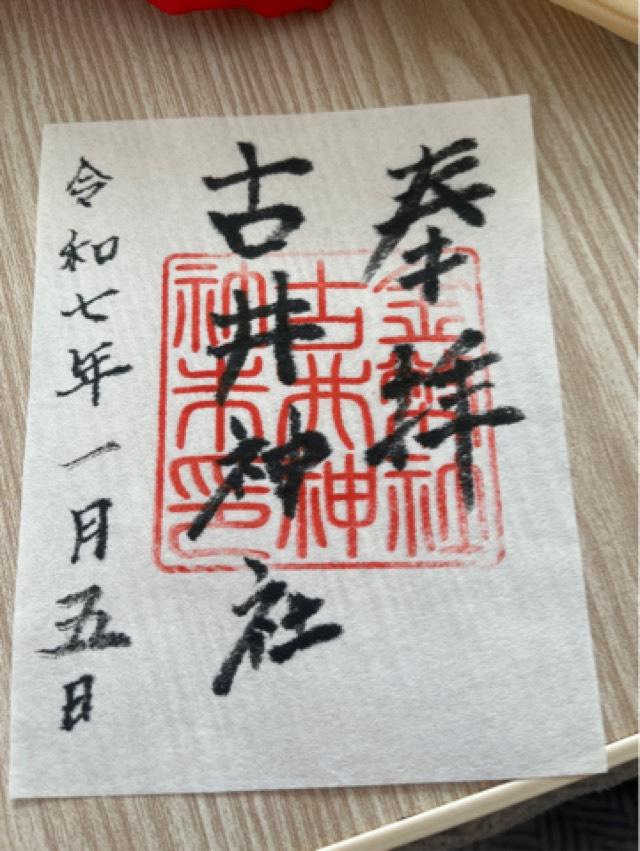 奉拝
古井神社
令和七年一月五日
古井神